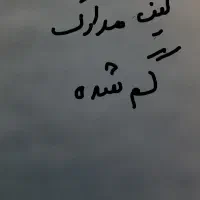 کیف مدارک
گم شده